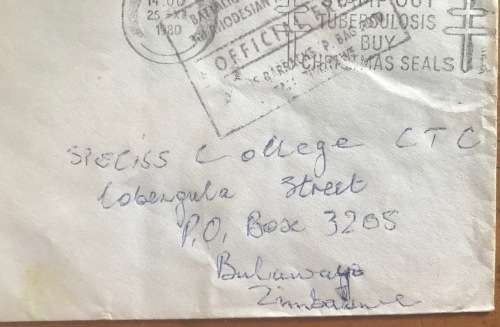 14.00
25 XI
1980
RHODESIAN
OFFICIAL
BARRACKS, P. BAG
STAMP OUT
TUBERCULOSIS
BUY
CHRISTMAS SEALS
SPECISS College CTC
Lobengula Street
P.O, Box 3205
Bulawayo
Zimbabwe